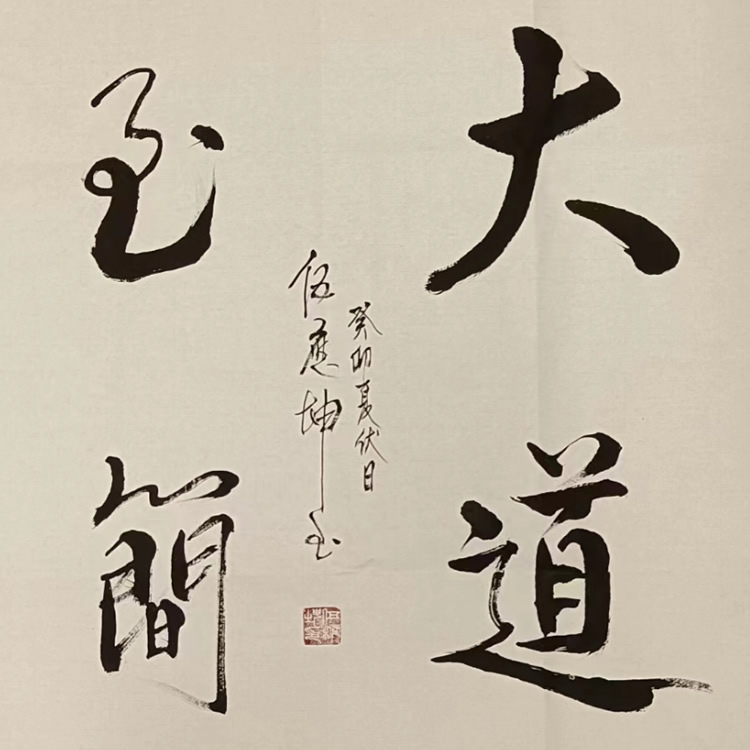 大道
至簡
癸卯夏伏日
伍應坤书